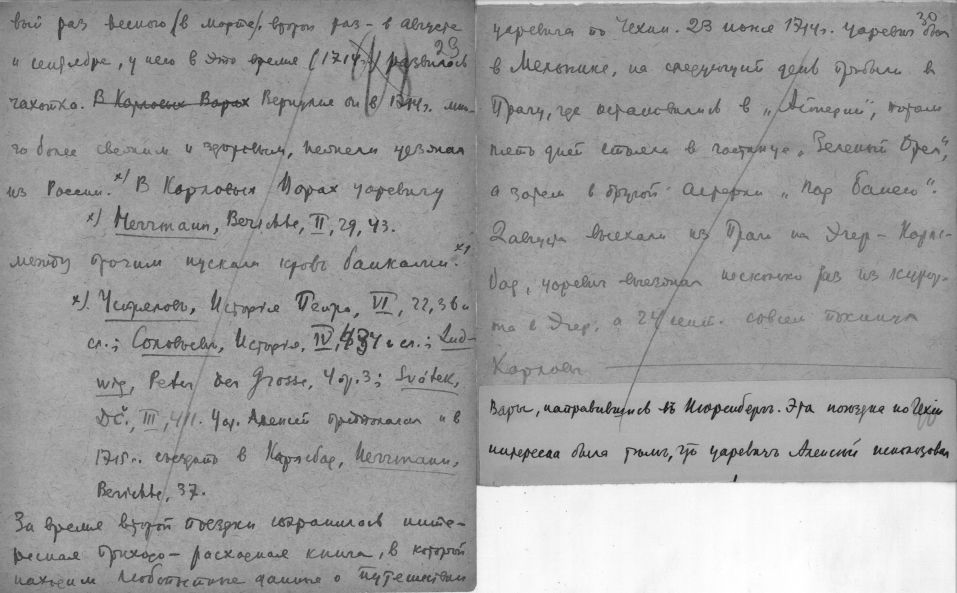 вый раз весною /в марте/ второй раз – в августе
23
и сентябре, у него в это время (1714) развилась
чахотка. В Карловых Варах Вернулся он в 1714г. мно-
го более свежим и здоровым, нежели уезжал
из России.ˣ⁾ В Карловых Варах царевичу
ˣ⁾ Herrmann, Berichte, II, 29, 43.
между прочим пускали кровь банками.ˣ⁾
ˣ⁾ Устрялов, История Петра, VI, 22, 36 и
сл.; Соловьев, История, IV, и сл.; Lud-
wig, Peter der Grosse, 4 3; Svátek,
DČ, III, 411. Цар. Алексей предполагал и в
1715г. съездить в Карлсбад, Herrmann,
Berichte, 37.
За время второй поездки сохранилась инте-
ресная приходо-расходная книга, в которой
находим любопытные данные о путешествии
30
царевича по Чехии. 23 июня 1714г. царевич был
в Мельнике, на следующий день прибыли в
Прагу, где остановились в „Астерии“, потом
пять дней стояли в гостинице „Зеленый Орел“,
а затем в другой астерии „под башею“.
2 августа выехали из Праги на Эгер – Карлс-
бад, царевич выезжал несколько раз из курор-
та в Эгер, а 24 сент. совсем покинул
Карловы
Вары, направившись въ Нюренбергъ. Эта поездка по Чехіи
интересна была тѣмъ, что царевичъ Алексѣй использовал